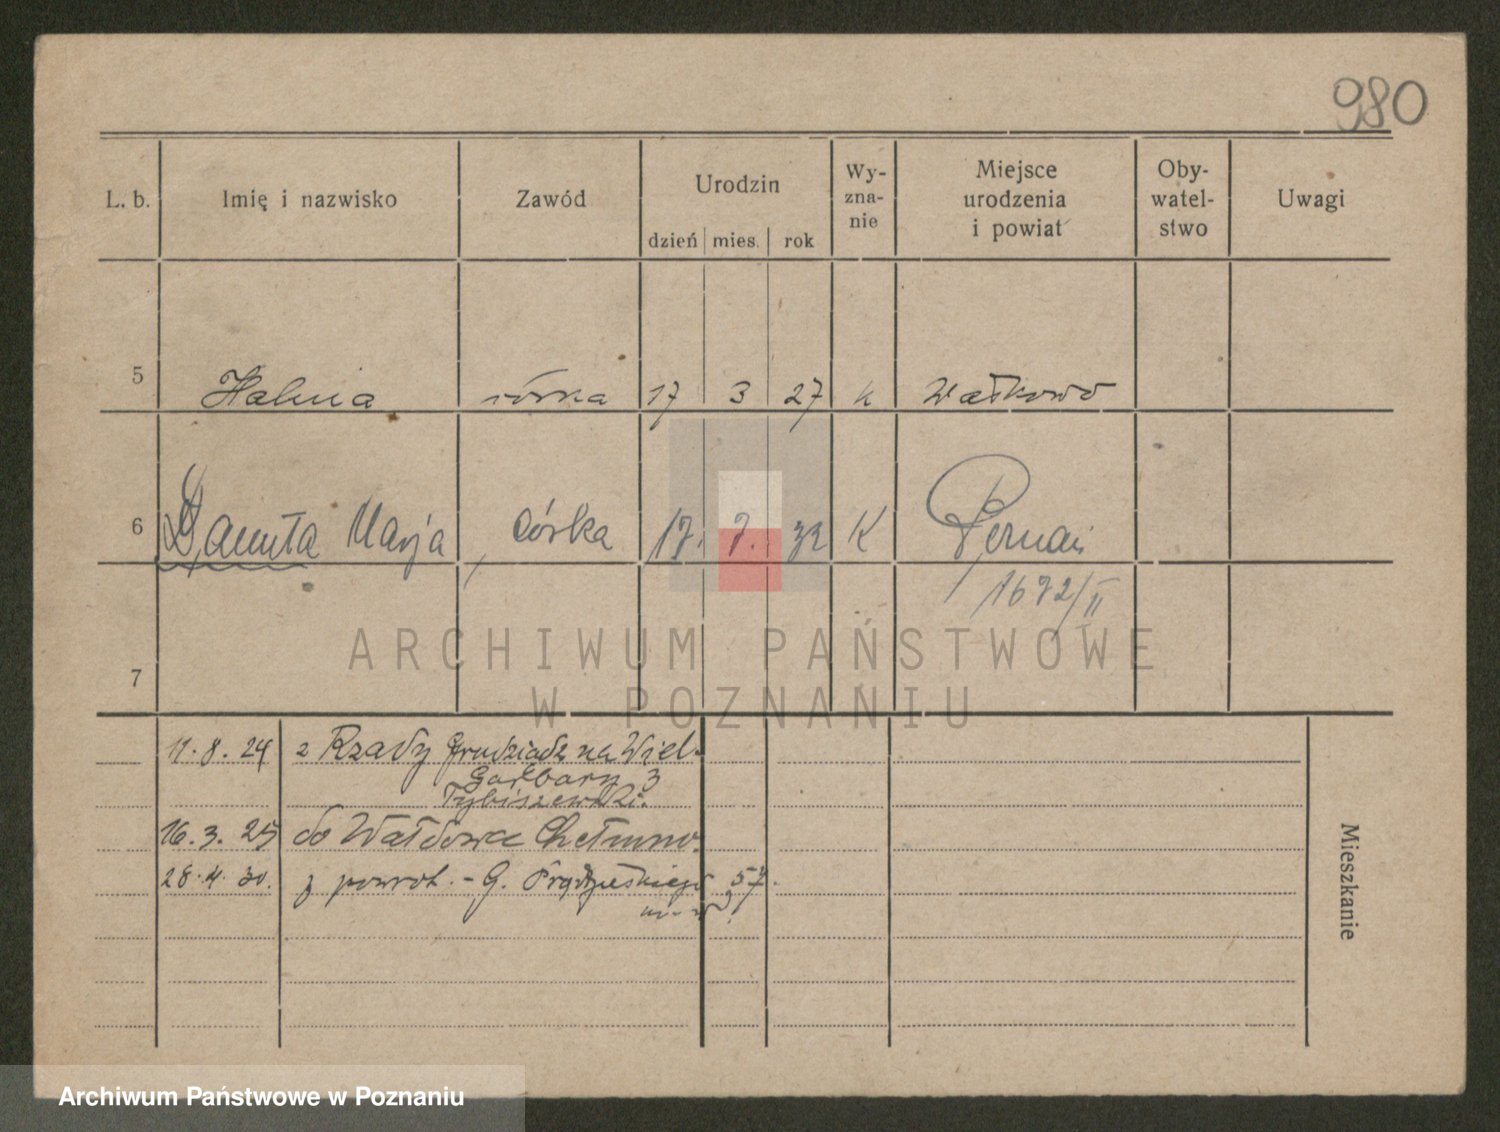 980
L. b. Imię i nazwisko Zawód Urodzin Wy-zna-nie Miejsce urodzenia i powiat Oby-watel-stwo Uwagi
dzień mies. rok
5 Halina córka 17 3 27 k Wałkowo
6 Danuta Marja córka 17. 7. 32 K Poznań
1672/II
7
11. 8. 24 z Rządy Grudziądz na Wiel.
Garbary 3
Tybiszewski.
16. 3. 25 do Chełmno.
28. 4. 30. z powrot. - G. 57.
Mieszkanie
ARCHIWUM PAŃSTWOWE
W POZNANIU
Archiwum Państwowe w Poznaniu